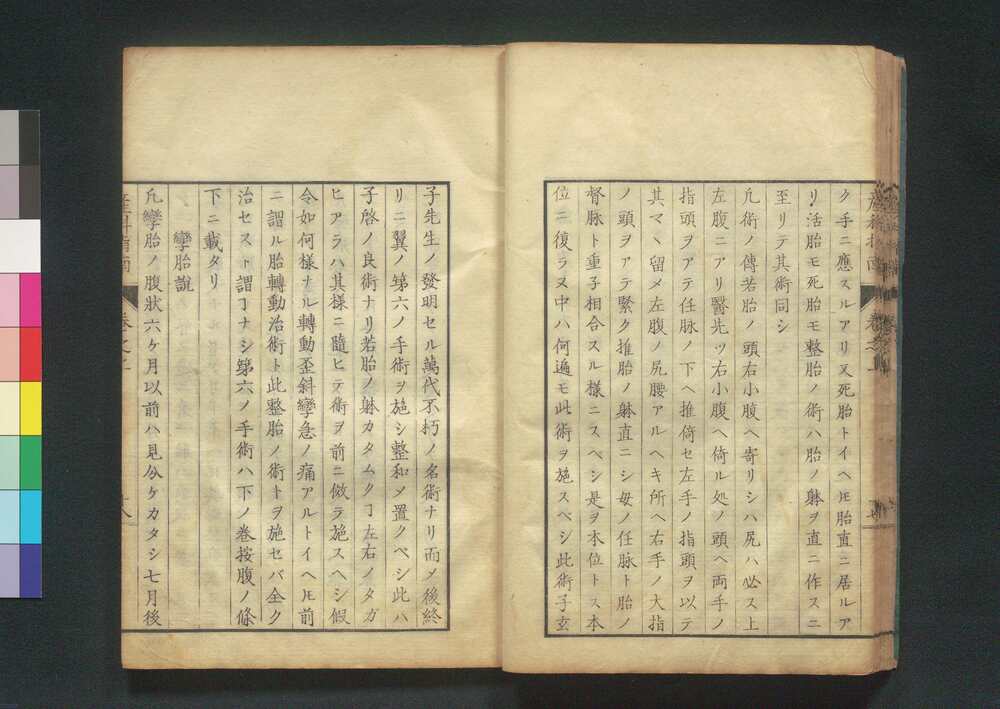 ク手ニ應スルアリ又死胎トイヘ𪜈胎直ニ居ルア
リ活胎モ死胎モ整胎ノ術ハ胎ノ躰ヲ直ニ作スニ
至リテ其術同シ
凢術ノ傳若胎ノ頭右小腹ヘ寄リシハ尻ハ必ス上
左腹ニアリ醫先ツ右小腹ヘ倚ル処ノ頭ヘ両手ノ
指頭ヲアテ任脉ノ下ヘ推倚セ左手ノ指頭ヲ以テ
其マヽ留メ左腹ノ尻腰アルヘキ所ヘ右手ノ大指
ノ頭ヲアテ緊ク推胎ノ躰直ニシ母ノ任脉ト胎ノ
督脉ト重子相合スル様ニスヘシ是ヲ本位トス本
位ニ復ラヌ中ハ何遍モ此術ヲ施スベシ此術子玄
子先生ノ發明セル萬代不朽ノ名術ナリ而〆後終
リニ翼ノ第六ノ手術ヲ施シ整和〆置クベシ此ハ
子啓ノ良術ナリ若胎ノ躰カタムクヿ左右ノタガ
ヒアラハ其様ニ隨ヒテ術ヲ前ニ倣ラ施スヘシ假
令如何様ナル轉動歪斜攣急ノ痛アルトイヘ𪜈前
ニ謂ル胎轉動治術ト此整胎ノ術トヲ施セバ全ク
治セスト謂ヿナシ第六ノ手術ハ下ノ巻按腹ノ條
下ニ載タリ
孿胎說
凢孿胎ノ腹狀六ケ月以前ハ見分ケカタシ七月後